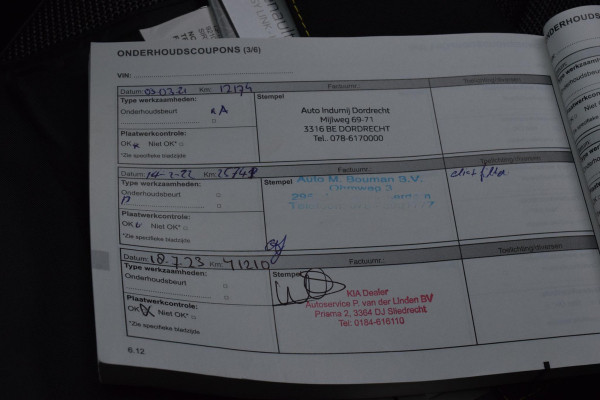 ONDERHOUDSCOUPONS (3/6)
VIN:
Datum: 03-03-21 Km: 12174 Factuurnr.: Toelichting/diversen
Type werkzaamheden: Stempel
Onderhoudsbeurt A
Plaatwerkcontrole:
OK Niet OK*
*Zie specifieke bladzijde
Auto Indumij Dordrecht
Mijlweg 69-71
3316 BE DORDRECHT
Tel.. 078-6170000
Datum: 14-3-22 Km: Factuurnr.: Toelichting/diversen
Type werkzaamheden: Stempel
Onderhoudsbeurt
Plaatwerkcontrole:
OK Niet OK*
*Zie specifieke bladzijde
Auto M. Bouman B.V.
Ohmweg 3
Datum: 18.7.23 Km: 41210 Factuurnr.: Toelichting/diversen
Type werkzaamheden: Stempel
Onderhoudsbeurt
Plaatwerkcontrole:
OK Niet OK*
*Zie specifieke bladzijde
KIA Dealer
Autoservice P. van der Linden BV
Prisma 2, 3364 DJ Sliedrecht
Tel: 0184-616110
6.12
ONDERHOUDS